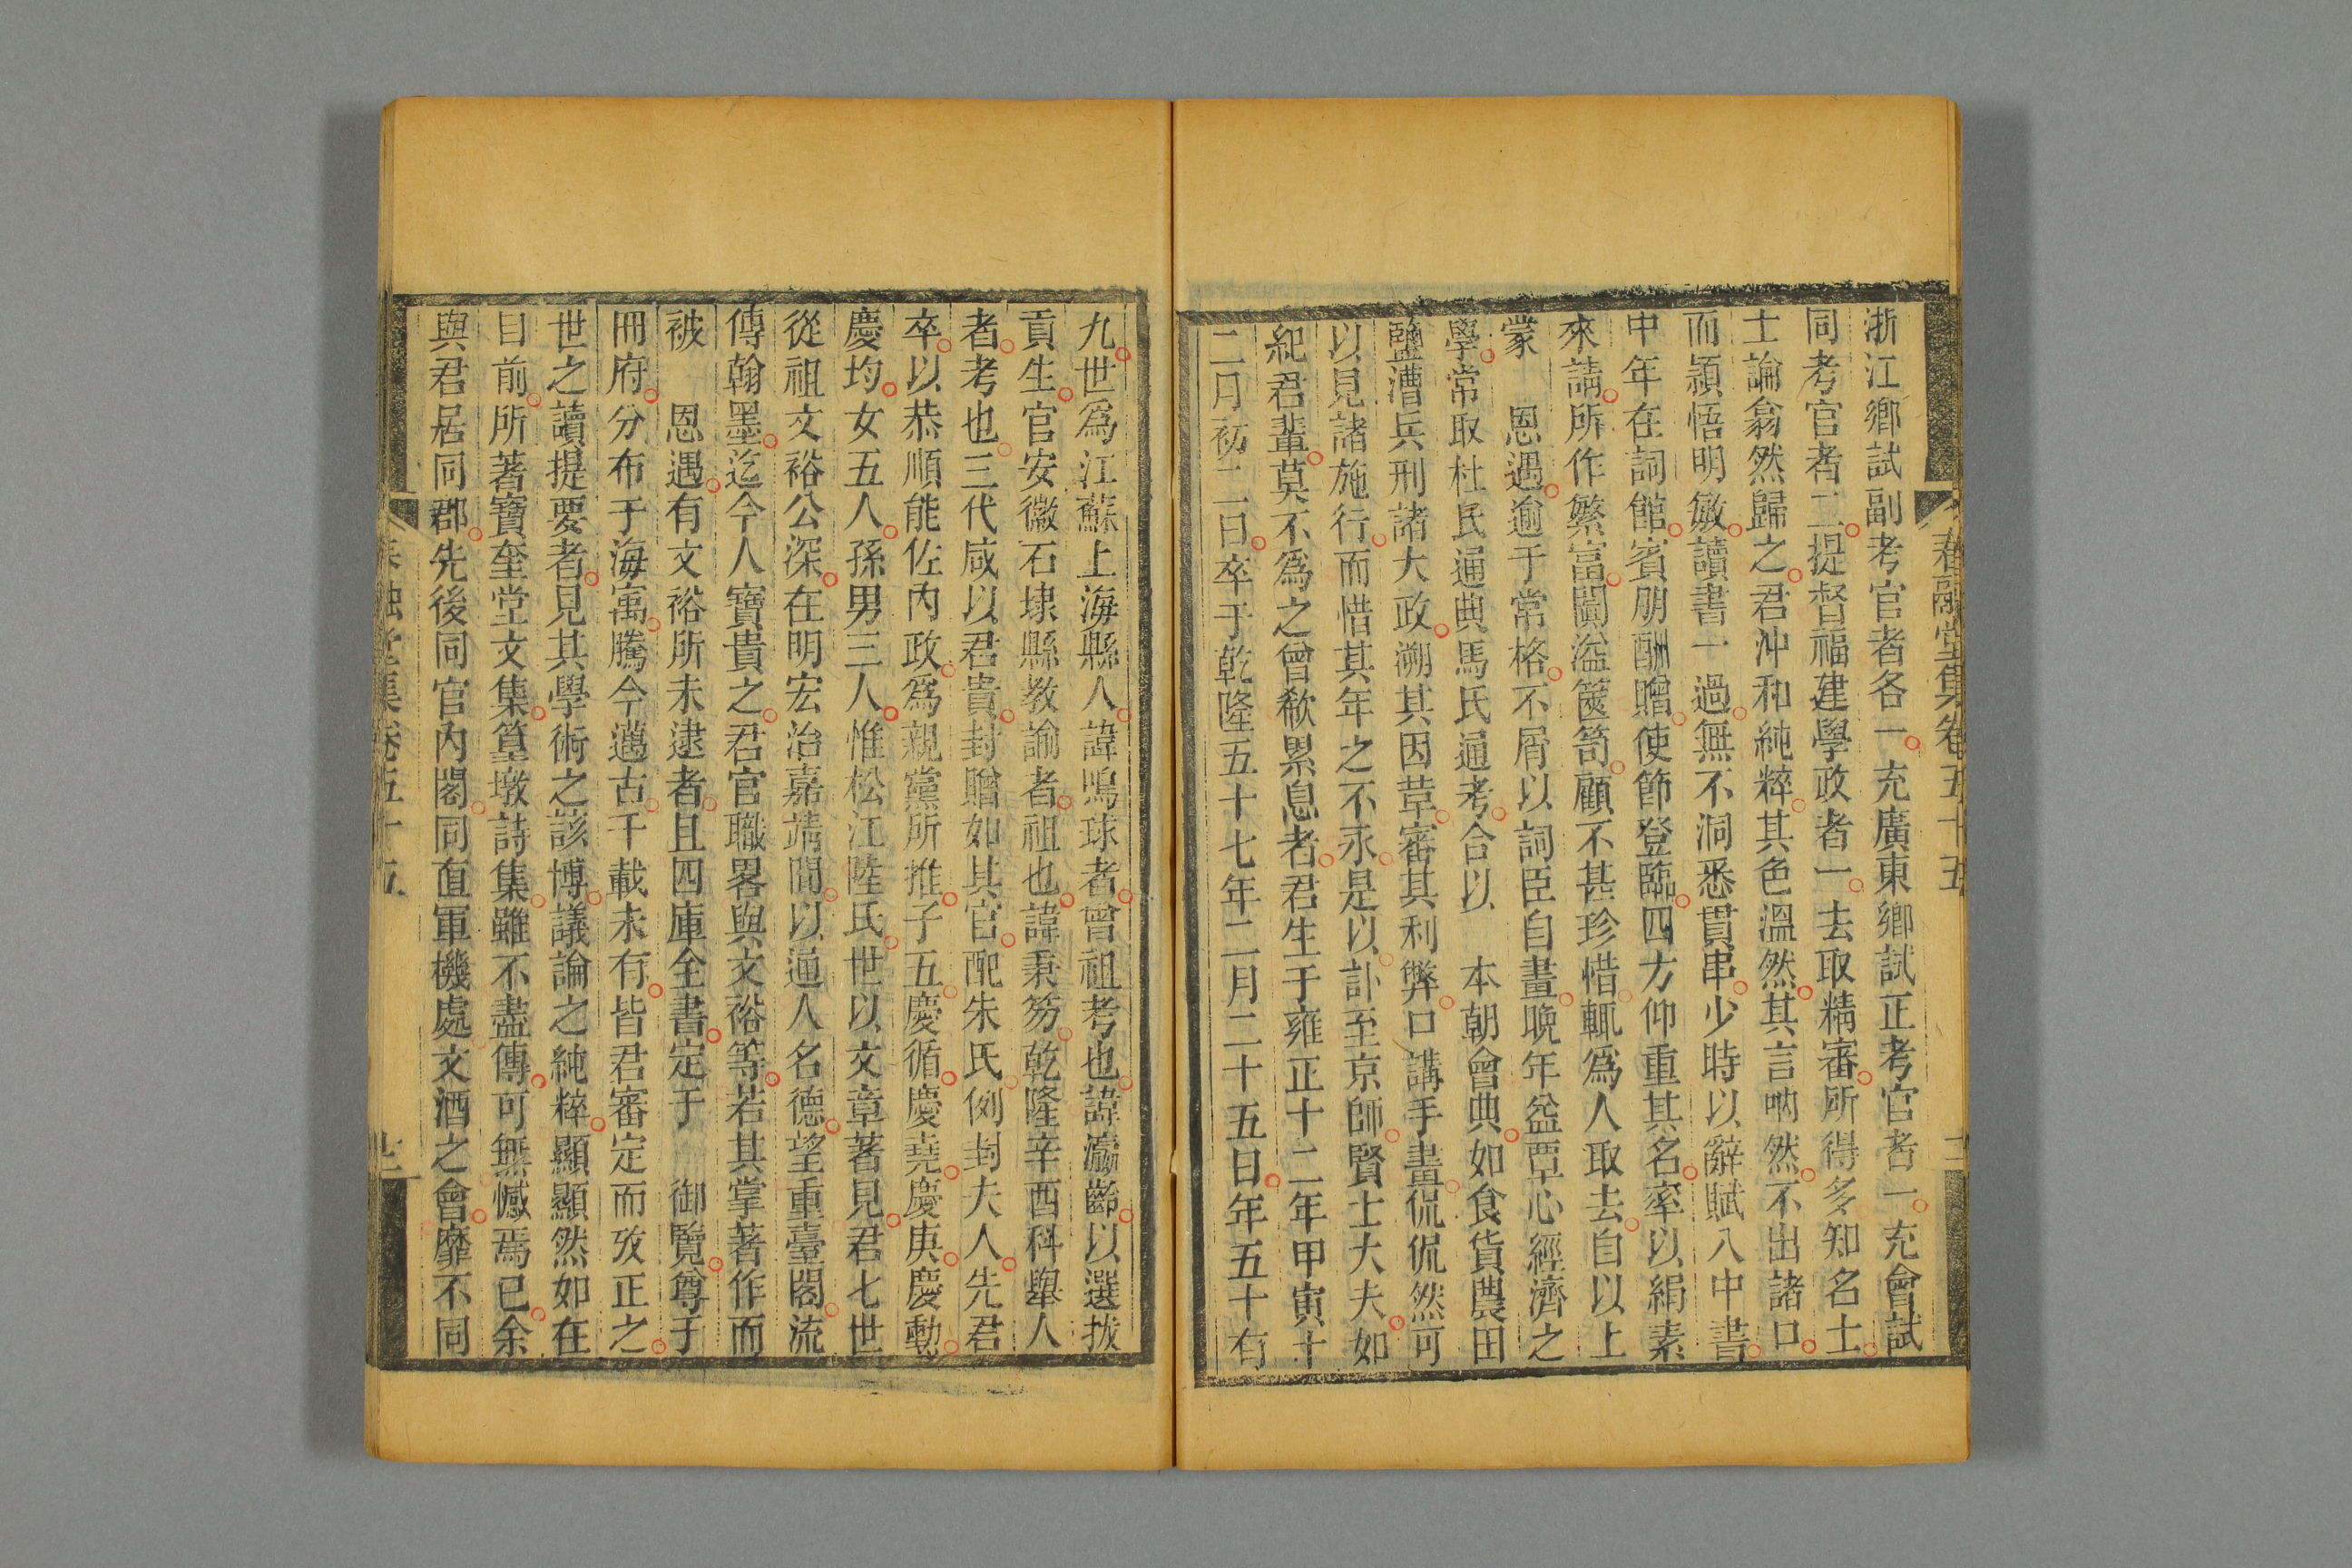 浙江鄉試副考官者各一充廣東鄉試正考官者一充會試
同考官者二提督福建學政者一去取精審所得多知名士
士論翕然歸之君沖和純粹其色溫然其言吶然不出諸口
而穎悟明敏讀書一過無不洞悉貫串少時以辭賦入中書
中年在詞館賓朋酬贈使節登臨四方仰重其名率以絹素
來請所作繁富闐溢篋笥顧不甚珍惜輒爲人取去自以上
蒙　恩遇逾于常格不屑以詞臣自畫晚年益覃心經濟之
學常取杜氏通典馬氏通考合以　本朝會典如食貨農田
鹽漕兵刑諸大政溯其因革審其利弊口講手畫侃侃然可
以見諸施行而惜其年之不永是以訃至京師賢士大夫如
紀君輩莫不爲之曾欷累息者君生于雍正十二年甲寅十
二月初二日卒于乾隆五十七年二月二十五日年五十有
春融堂集卷五十五
九世爲江蘇上海縣人諱鳴球者曾祖考也諱瀛齡以選拔
貢生官安徽石埭縣教諭者祖也諱秉笏乾隆辛酉科舉人
者考也三代咸以君貴封贈如其官配朱氏例封夫人先君
卒以恭順能佐內政爲親黨所推子五慶循慶堯慶庚慶動
慶均女五人孫男三人惟松江陸氏世以文章著見君七世
從祖文裕公深在明宏治嘉靖間以通人名德望重臺閣流
傳翰墨迄今人寶貴之君官職畧與文裕等若其掌著作而
被　恩遇有文裕所未逮者且四庫全書定于　御覽尊于
冊府分布于海寓騰今邁古千載未有皆君審定而攷正之
世之讀提要者見其學術之該博議論之純粹顯顯然如在
目前所著寶奎堂文集篁墩詩集雖不盡傳可無憾焉已余
與君居同郡先後同官內閣同直軍機處文酒之會靡不同
春融堂集卷五十五